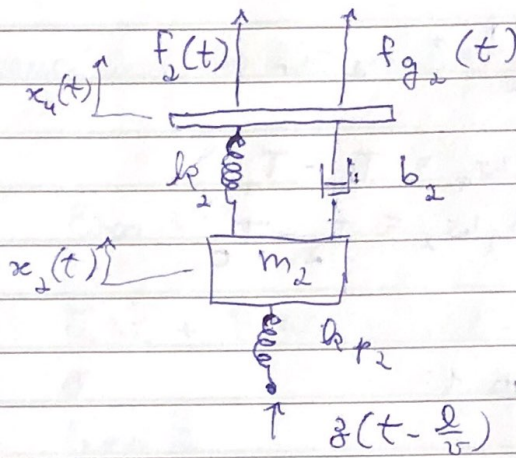 f₂(t) f_g₂(t)
x₄(t)
k₂ b₂
x₂(t) m₂
k_p₂
z(t - l/v)